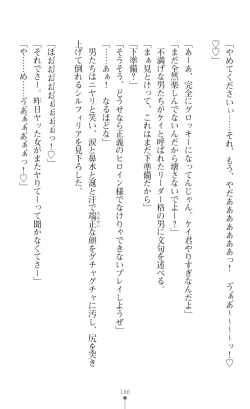 「やめてくださいぃ…　それ、もう、やだあああああぁっ！　うあぁぁ〜〜〜〜ッ！
♡♡」
「あーあ、完全にグロッキーになってんじゃん。ケイ君やりすぎなんだよ」
「まだ全然楽しんでないんだから壊さないでよー？」
不満げな男たちがケイと呼ばれたリーダー格の男に文句を述べる。
「まぁ見とけって、これはまだ下準備だから」
「下準備？」
「……あぁ！　なるほどな」
「そうそう、どうせなら正義のヒロイン様でなけりゃできないプレイしようぜ」
男たちはニヤリと笑い、涙と鼻水と涎と汗で端正な顔をグチャグチャに汚し、尻を突き
上げて倒れるシルフィリアを見下ろした。
「ほおおおおおおおおっ！♡」
「それでさー。昨日ヤッた女がまたヤりてーって聞かなくてさー」
「や……め……うあぁあぁぁぁっ！♡」
166